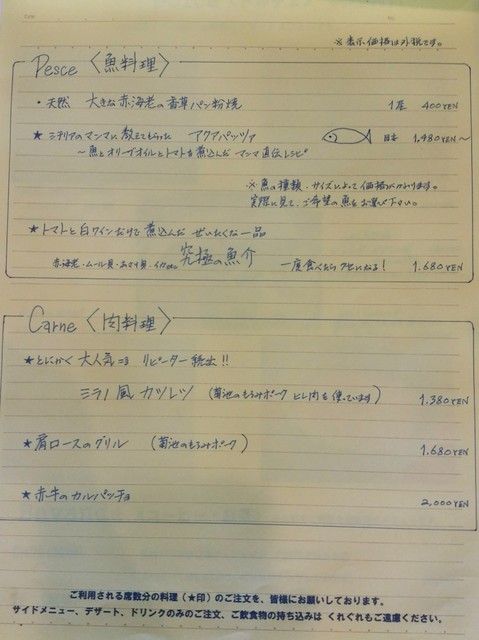 ※ 表示価格は外税です。
Pesce 〈魚料理〉
・天然 大きな赤海老の香草パン粉焼 1尾 400YEN
★ シチリアのマンマに教えてもらった アクアパッツァ 1,980YEN〜
〜魚とオリーブオイルとトマトを煮込んだ マンマ直伝レシピ
※ 魚の種類、サイズによって価格がかわります。
実際に見て、ご希望の魚をお選び下さい。
★トマトと白ワインだけで煮込んだ ぜいたくな一品
赤海老・ムール貝・あさり貝・イカetc. 究極の魚介 一度食べたらクセになる! 1,680YEN
Carne 〈肉料理〉
★とにかく 大人気 リピーター続出!!
ミラノ風カツレツ (菊池のもろみポーク ヒレ肉を使っています) 1,380YEN
★肩ロースのグリル (菊池のもろみポーク) 1,680YEN
★赤牛のカルパッチョ 2,000YEN
ご利用される席数分の料理(★印)のご注文を、皆様にお願いしております。
サイドメニュー、デザート、ドリンクのみのご注文、ご飲食物の持ち込みは くれぐれもご遠慮ください。